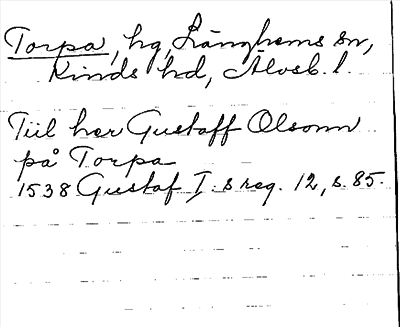 Torpa, hg, Länghems sn,
Kinds hd, Älvsb. l.
Tiil her Gustaff Olsonn
på Torpa
1538 Gustaf I.s reg. 12, s. 85.